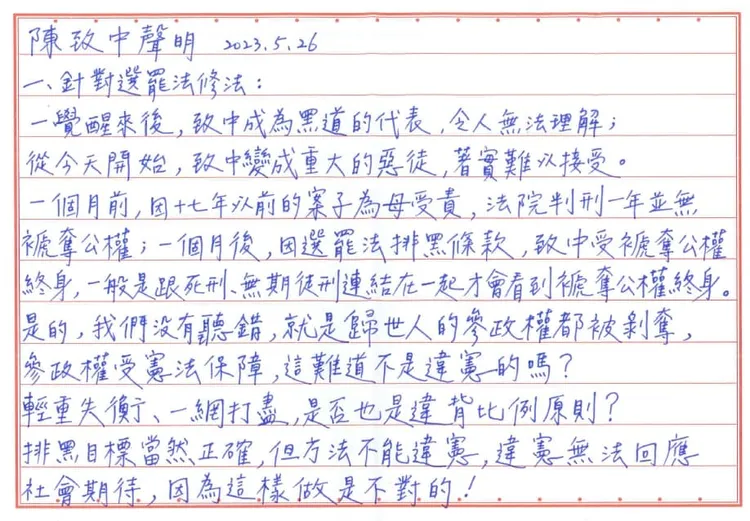 陳致中聲明 2023.5.26
一、針對選罷法修法：
一覺醒來後，致中成為黑道的代表，令人無法理解；
從今天開始，致中變成重大的惡徒，著實難以接受。
一個月前，因十七年以前的案子為母受責，法院判刑一年並無
褫奪公權；一個月後，因選罷法排黑條款，致中受褫奪公權
終身，一般是跟死刑、無期徒刑連結在一起才會看到褫奪公權終身。
是的，我們沒有聽錯，就是歸世人的參政權都被剝奪，
參政權受憲法保障，這難道不是違憲的嗎？
輕重失衡、一網打盡，是否也是違背比例原則？
排黑目標當然正確，但方法不能違憲，違憲無法回應
社會期待，因為這樣做是不對的！